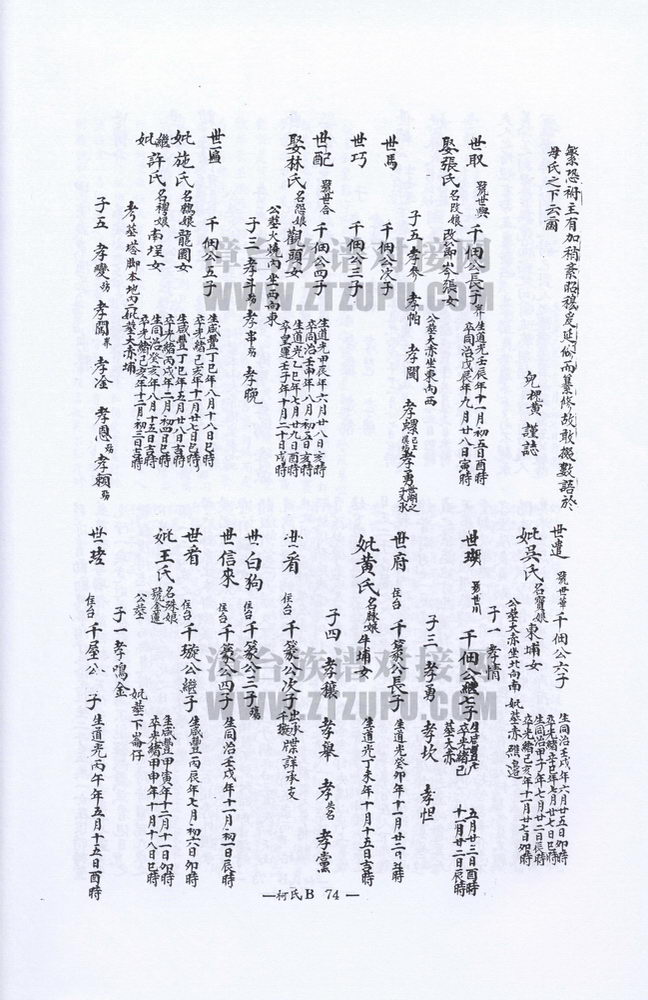 繁恐祔主有加稍紊昭穆爰延俗而纂修故敢擬數語於
母氏之下云爾
兒
黃謹誌
世取
號世興
千佃公長子
生道光壬辰年十一月初五日酉時
卒同治戊辰年九月廿八日寅時
娶張氏
名改娘
公墓大赤坐東向西
子五
孝參
孝帕
孝闖
孝螺
孝勇
世馬
千佃公次子
世巧
千佃公三子
世配
號世合
千佃公四子
生道光甲辰年六月廿八日亥時
卒同治壬申年八月初五日亥時
娶林氏
名怨娘
觀頭女
生道光乙巳年七月廿九日酉時
卒皇運壬子年十月二十日戌時
公墓火燒內坐西向東
子三
孝斗
孝串
孝晥
世區
千佃公五子
生咸豐丁巳年八月十八日巳時
卒光緒己亥年十一月廿七日巳時
妣施氏
名鶴娘
龍園女
生咸豐丁巳年五月廿八日吉時
卒光緒丙戌年二月初四日巳時
繼妣許氏
名禮娘
南埕女
生同治癸亥年八月十五日吉時
卒光緒己亥年十二月初二日吉時
考墓塔腳本地內
妣墓大赤埔
子五
孝變
孝闖
孝淦
孝恩
孝賴
世遣
號世華
千佃公六子
生同治壬戌年六月廿五日卯時
卒光緒辛巳年七月廿七日巳時
妣吳氏
名寶娘
東埔女
生同治甲子年七月廿二日辰時
卒光緒己亥年十一月廿七日卯時
公墓大赤坐北向南
子一
孝情
世瑚
號世川
千佃公繼六子
五月廿三日酉時
十一月廿二日辰時
墓大赤
子三
孝勇
孝坎
孝怛
世府
住台
千篆公長子
生道光癸卯年十一月廿二日
時
妣黃氏
名絲娘
牛埔女
生道光丁未年十月十五日亥時
子四
孝穰
孝舉
孝
孝黨
世看
住台
千篆公次子
出承
牒詳承支
世白狗
住台
千篆公三子
世信來
住台
千篆公四子
生同治壬戌年十一月初一日辰時
世看
住台
千璇公繼子
生咸豐丙辰年七月初六日卯時
妣王氏
名殊娘
號金蓮
生咸豐甲寅年十二月十一日卯時
卒光緒甲申年十月十八日巳時
公墓
妣墓下崙仔
子一
孝鴻金
世琽
住台
千屋公
子
生道光丙午年五月十五日酉時
—柯氏B 74—
漳台族谱对接网
WWW.ZTZUPU.COM
漳台族谱对接网
WWW.ZTZUPU.COM